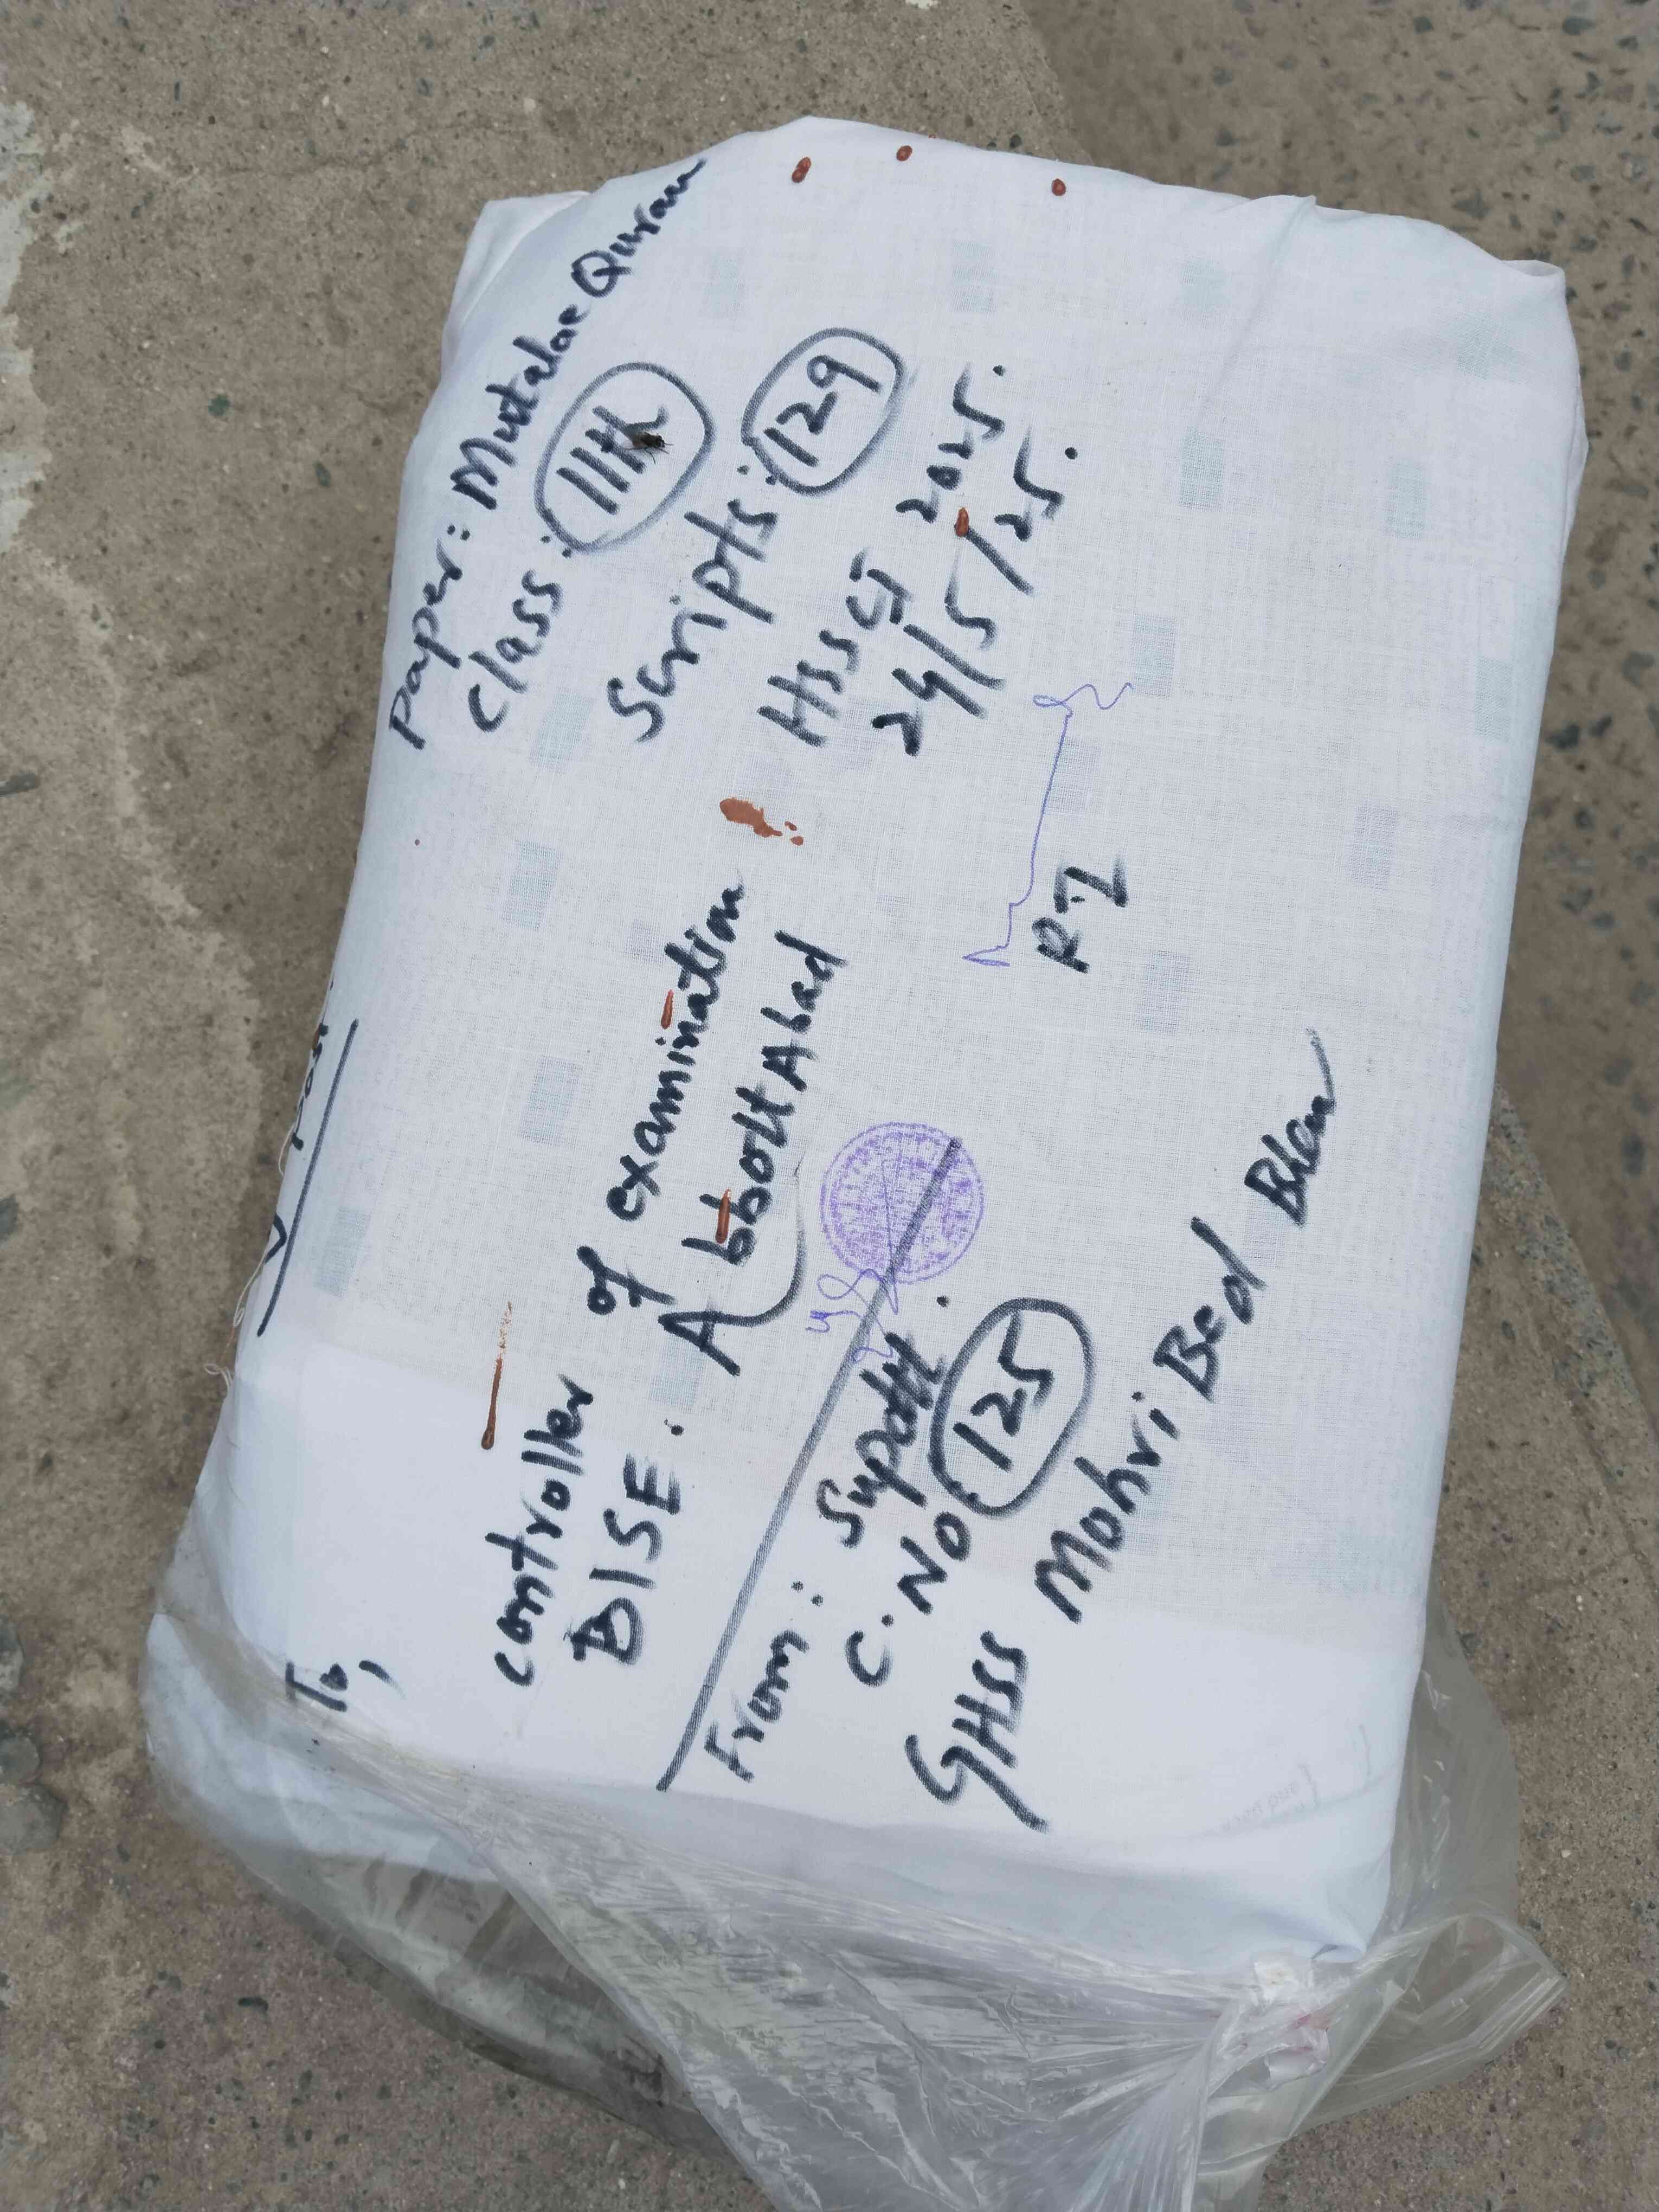 To,
controller of examination
BISE. AbbottAbad
Paper: Mutalae Quran
Class: 11th
Scripts: 129
HSSCI 2025.
24/5/25.
R-I
From: Supdtt.
C.No. 125
GHSS Mohri Bed Bhen